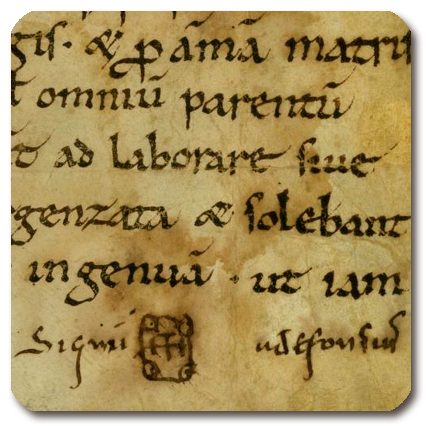 gis · & p ãnimã matris
omniũ parentũ
t ad laborare siue
genzata & solebant
ingenuã · ut iam
Signũ ildefonsus